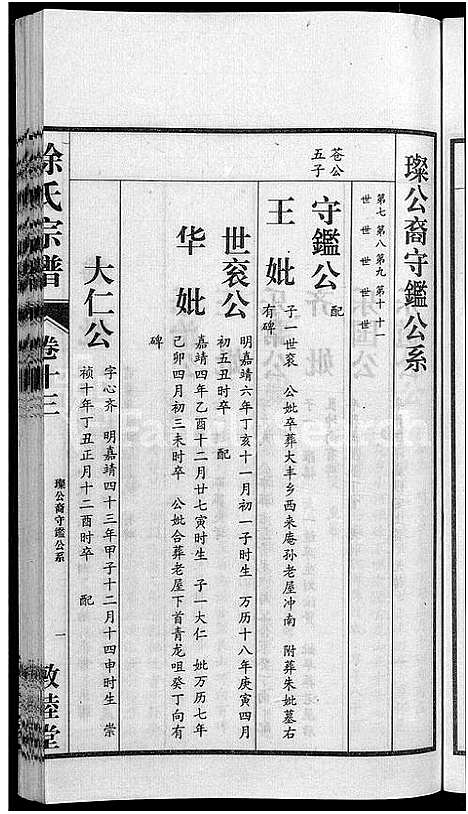 璨公裔守鑑公系
第七世
第八世
第九世
第十世
十一世
苍公
五子
守鑑公 配
王妣
子一世衮 公妣卒葬大丰乡西来庵孙老屋冲南 附葬朱妣墓右
有碑
世衮公
明嘉靖六年丁亥十一月初一子时生 万历十八年庚寅四月
初五丑时卒 配
华妣
嘉靖四年乙酉十二月廿七寅时生 子一大仁 妣万历七年
己卯四月初三未时卒 公妣合葬老屋下首青龙咀癸丁向有
碑
大仁公
字心齐 明嘉靖四十三年甲子十二月十四申时生 崇
祯十年丁丑正月十二酉时卒 配
徐氏宗谱
卷十三
璨公裔守鑑公系
一
敦睦堂